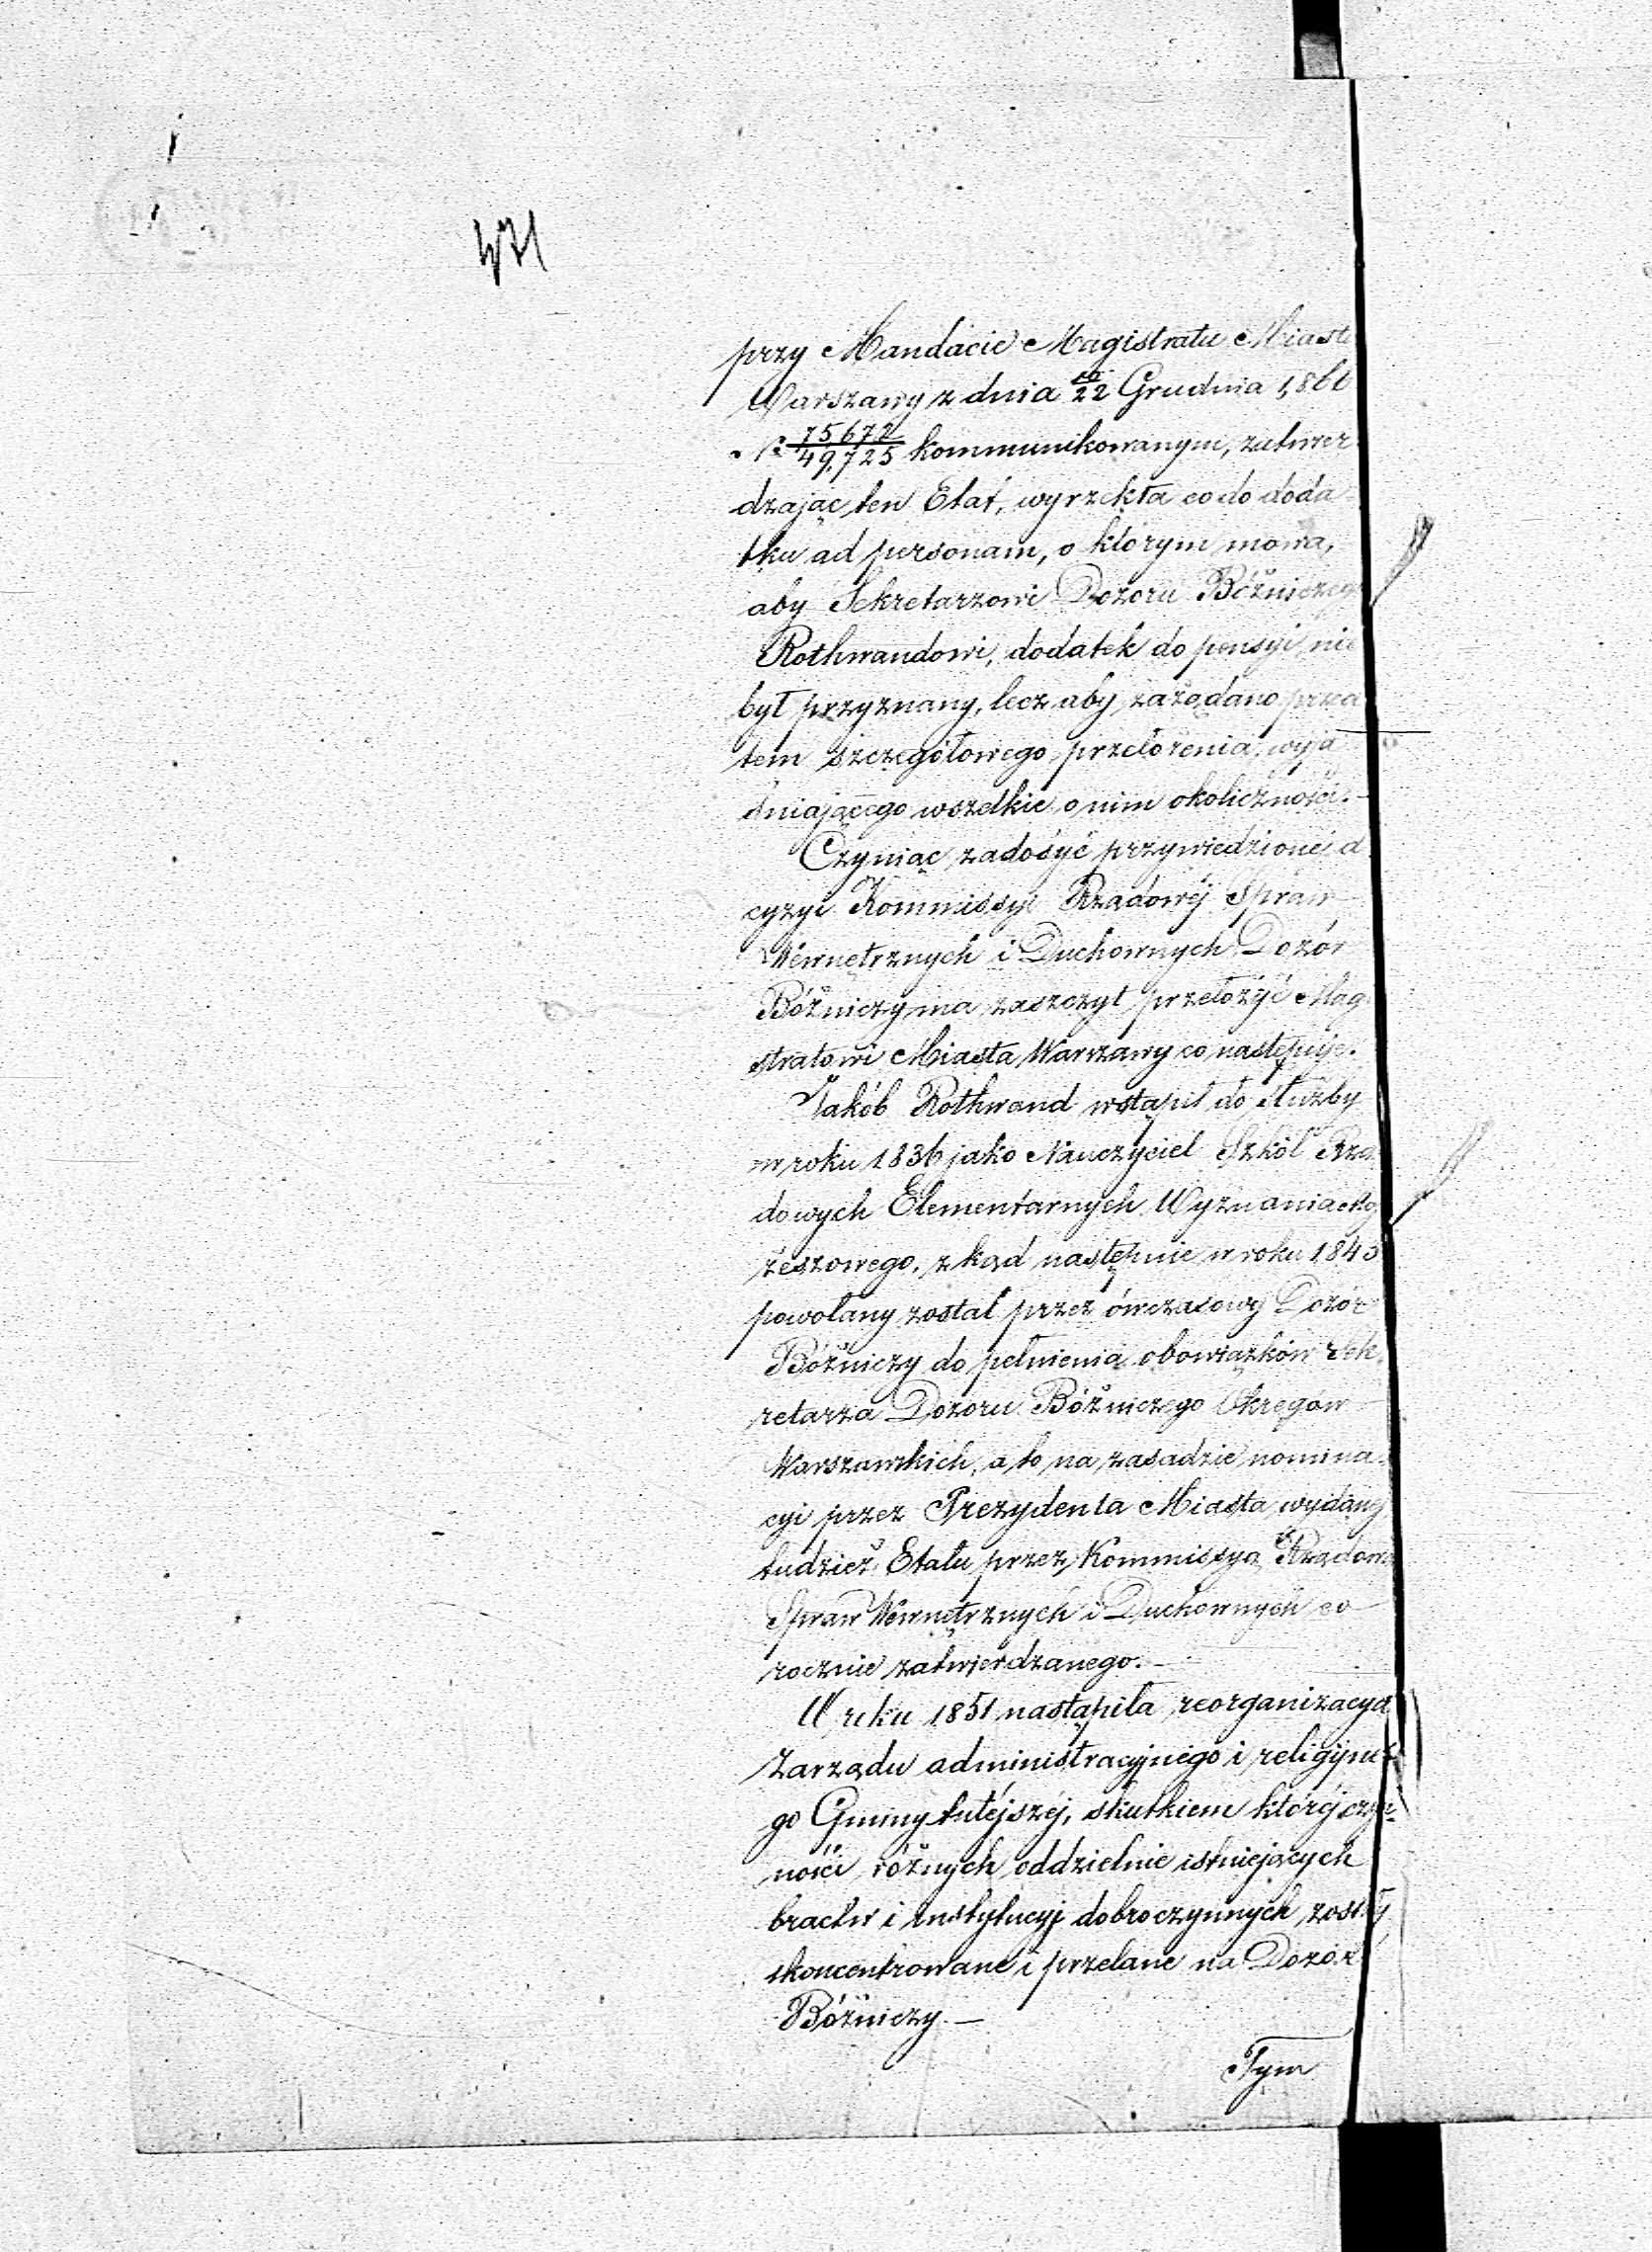 471
przy Mandacie Magistratu Miast
Warszawy z dnia 10/22 Grudnia 1861
№ 75672/49,725 kommunikowanym, zatwier
dzając ten Etat, wyrzekła co do doda
tku ad personam, o którym mowa,
aby Sekretarzowi Dozoru Bóżniczeg
Rothwandowi, dodatek do pensyi nie
był przyznany, lecz aby zażądano przed
tem szczegółowego przełożenia, wyja
śniającego wszelkie o nim okoliczności.—
Czyniąc zadosyć przywiedzionej d
cyzyi Kommissyi Rządowéj Spraw
Wewnętrznych i Duchownych Dozór
Bóżniczy ma zaszczyt przełożyć Mag
stratowi Miasta Warszawy co następuje.
Jakób Rothwand wstąpił do służby
w roku 1836 jako Nauczyciel Szkół Rzą
dowych Elementarnych Wyznania Moj
żeszowego, z kąd następnie w roku 1845
powołany został przez ówczasowy Dozór
Bóżniczy do pełnienia obowiązków Sek
retarza Dozoru Bóżniczego Okręgów
Warszawskich, a to na zasadzie nomina
cyi przez Prezydenta Miasta wydanej
tudzież Etatu przez Kommissyą Rządow
Spraw Wewnętrznych i Duchownych co
rocznie zatwierdzanego.—
W roku 1851 nastąpiła reorganizacya
Zarządu administracyjnego i religijne
go Gminy tutéjszéj, skutkiem któréj czyn
ności różnych oddzielnie istniejących
bractw i instytucyj dobroczynnych, zostały
skoncentrowane i przelane na Dozór
Bóżniczy.—
Tym